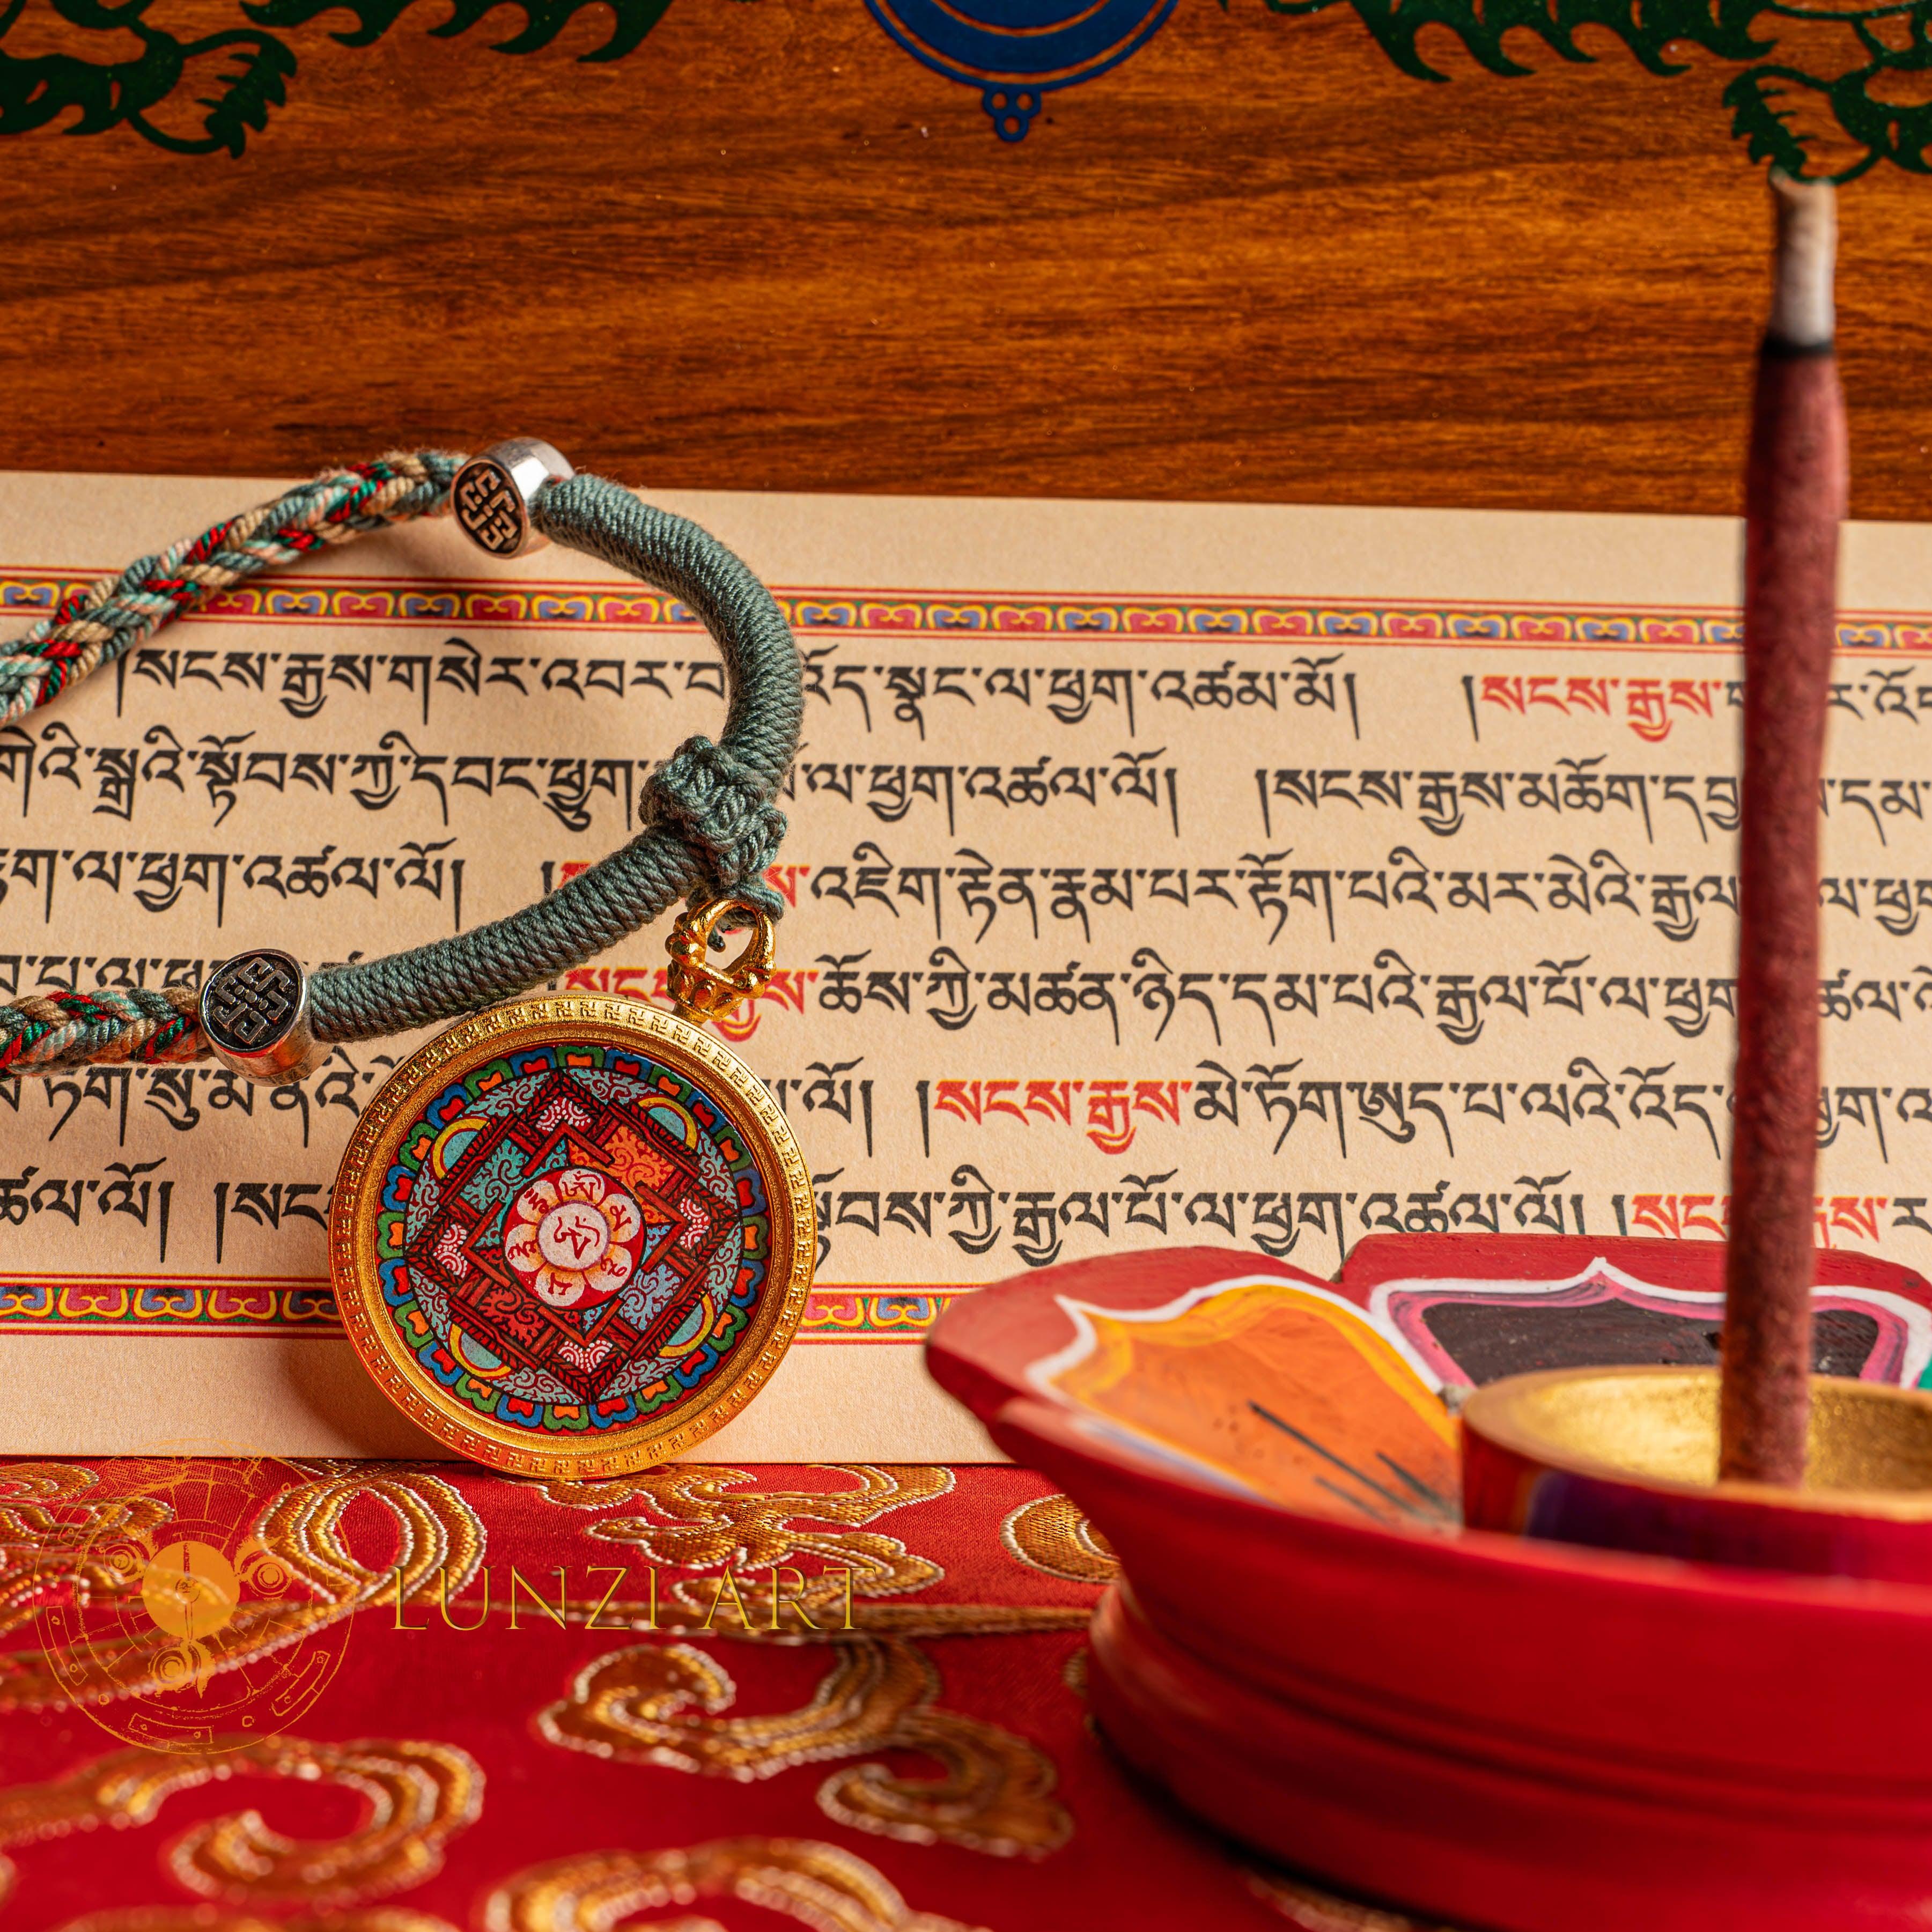 །སངས་རྒྱས་གསེར་འབར་བ འོད་སྣང་ལ་ཕྱག་འཚམ་མོ། །སངས་རྒྱས་
གེའི་སྒྲའི་སྟོབས་ཀྱི་དབང་ཕྱུག་ ལ་ཕྱག་འཚལ་ལོ། །སངས་རྒྱས་མཆོག་
ལ་ཕྱག་འཚལ་ལོ། འཇིག་རྟེན་རྣམ་པར་རྟོག་པའི་མར་མེའི་རྒྱལ ལ་ཕྱག
སངས་རྒྱས་ཆོས་ཀྱི་མཚན་ཉིད་དམ་པའི་རྒྱལ་པོ་ལ་ཕྱག
ལོ། །སངས་རྒྱས་མེ་ཏོག་ཨུད་པ་ལའི་འོད་
ལོ། །སང སྟོབས་ཀྱི་རྒྱལ་པོ་ལ་ཕྱག་འཚལ་ལོ།
LUNZI ART